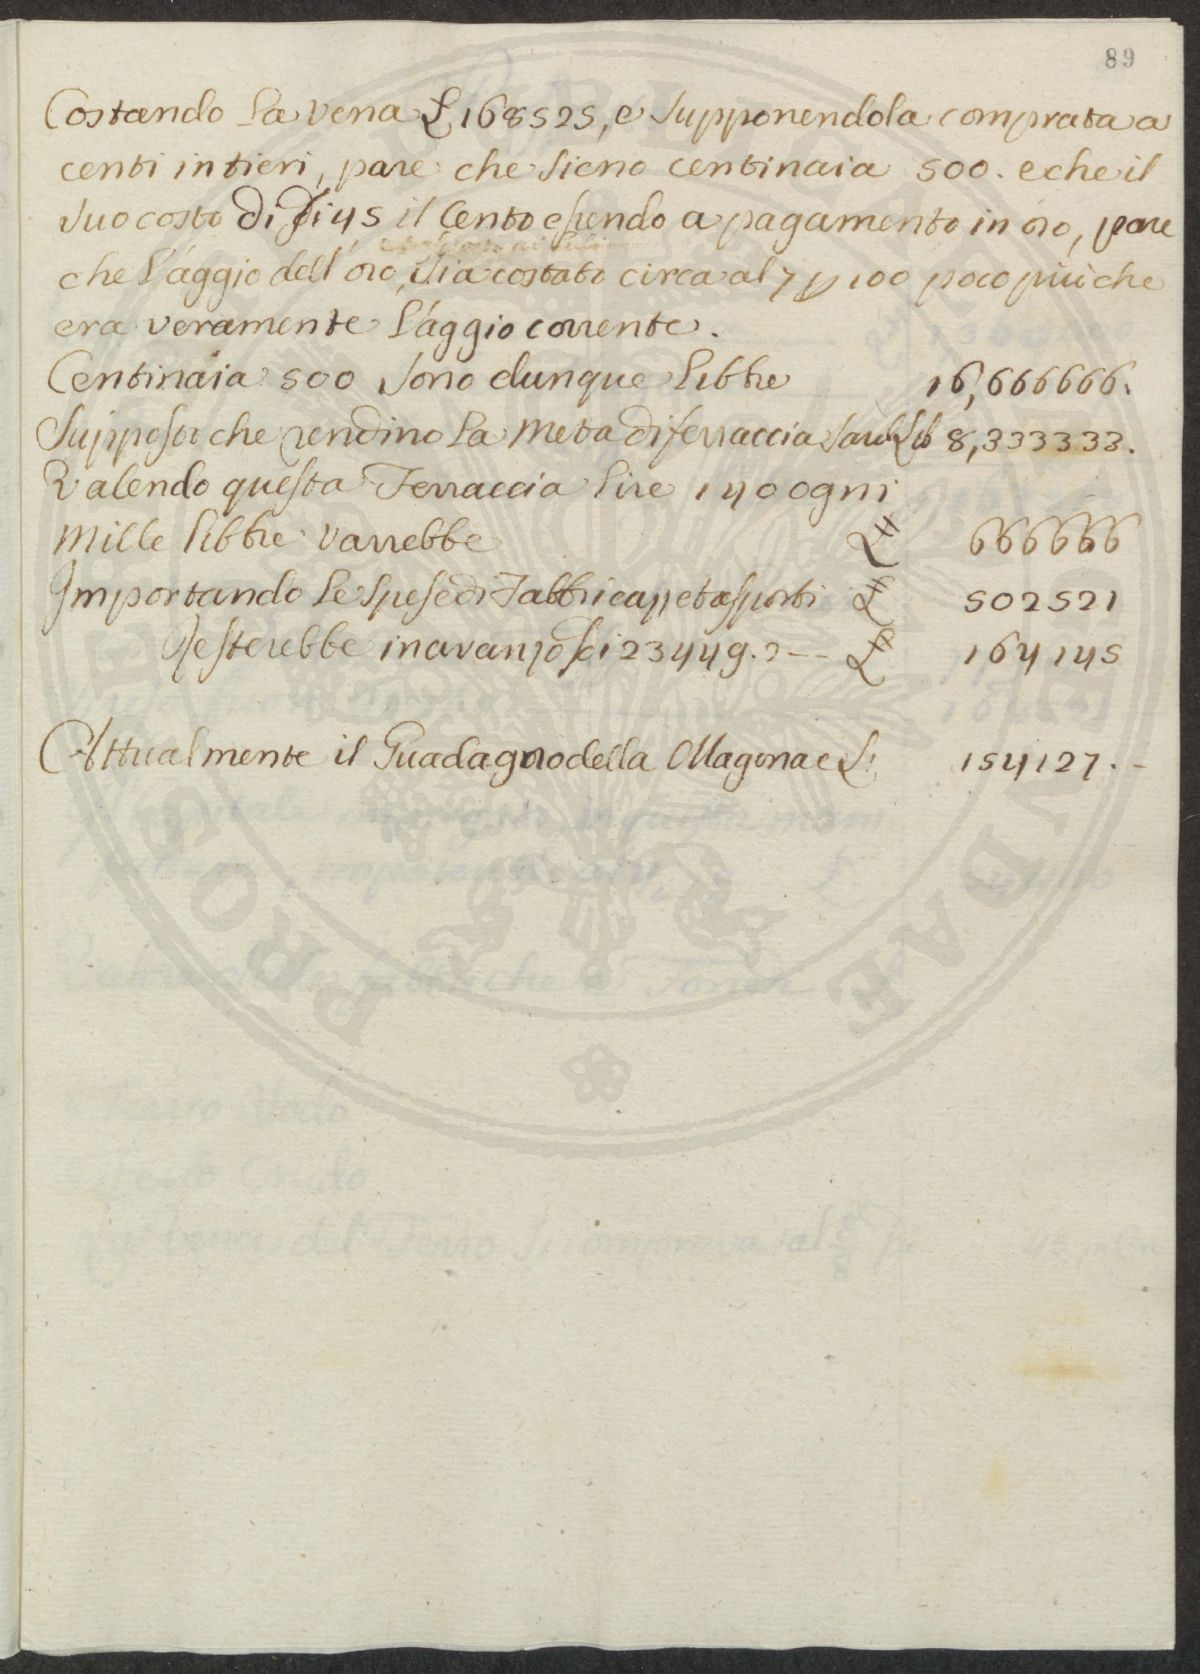 89
Costando la vena £ 168525, e supponendola comprata a
centi intieri, pare che sieno centinaia 500. e che il
suo costo di Di 45 il Cento essendo a pagamento in òro, pare
che l'àggio dell'òro, sia costato circa al 7 p 100 poco più che
era veramente l'àggio corrente.
Centinaia 500 sono dunque libbre 16,666666.
Supposto che rendino la metà di ferraccia sarebb lb 8,333333.
Valendo questa Ferraccia lire 1400 ogni
mille libbre varrebbe £ 666666
Importando le spese di Fabbrica, e trasporti £ 502521
Resterebbe in avanzo Di 23449. 2 — £ 164145
Attualmente il Guadagno della Magona è £ 154127. -